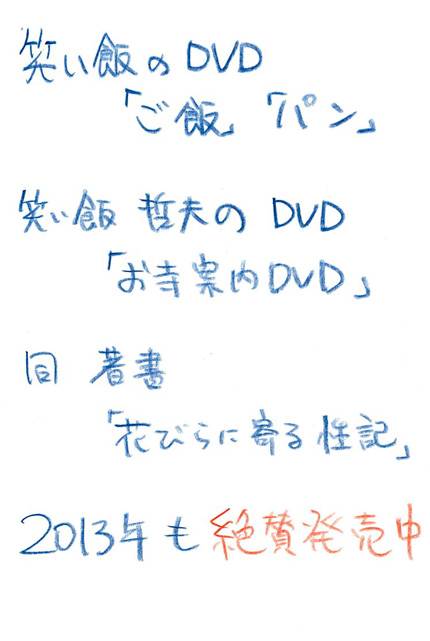 笑い飯のDVD
「ご飯」「パン」
笑い飯 哲夫のDVD
「お寺案内DVD」
同 著書
「花びらに寄る性記」
2013年も絶賛発売中